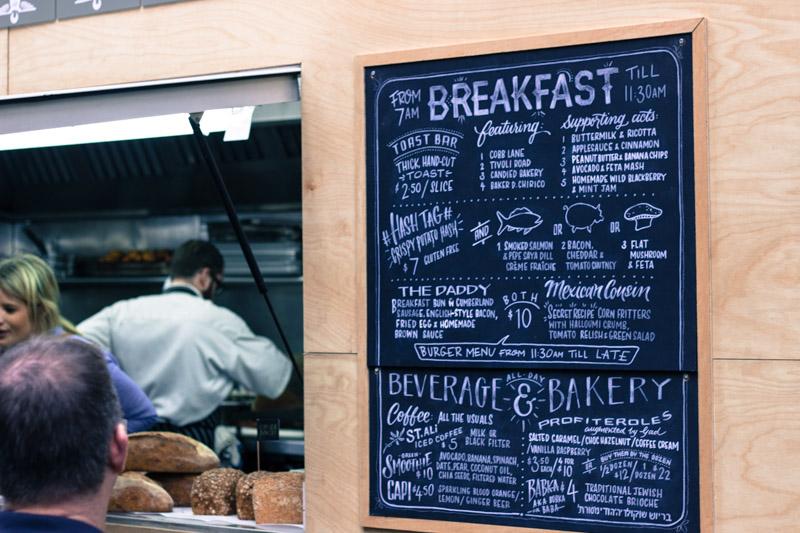 FROM 7AM BREAKFAST TILL 11:30AM
TOAST BAR
THICK, HAND-CUT
TOAST
$2.50/SLICE
featuring:
1 COBB LANE
2 TIVOLI ROAD
3 CANDIED BAKERY
4 BAKER D. CHIRICO
Supporting acts:
1 BUTTERMILK & RICOTTA
2 APPLESAUCE & CINNAMON
3 PEANUT BUTTER & BANANA CHIPS
4 AVOCADO & FETA MASH
5 HOMEMADE WILD BLACKBERRY
& MINT JAM
#HASH TAG#
CRISPY POTATO HASH
$7 GLUTEN FREE
AND
OR
OR
1 SMOKED SALMON
& PEPE SAYA DILL
CRÈME FRAÎCHE
2 BACON,
CHEDDAR &
TOMATO CHUTNEY
3 FLAT
MUSHROOM
& FETA
THE PADDY
BREAKFAST BUN W CUMBERLAND
SAUSAGE, ENGLISH-STYLE BACON,
FRIED EGG & HOMEMADE
BROWN SAUCE
BOTH
$10
Mexican Cousin
SECRET RECIPE CORN FRITTERS
WITH HALLOUMI CRUMB,
TOMATO RELISH & GREEN SALAD
BURGER MENU FROM 11:30AM TILL LATE
ALL-DAY
BEVERAGE & BAKERY
Coffee: ALL THE USUALS
ST. ALi
ICED COFFEE
$5
MILK OR
BLACK FILTER
GREEN
SMOOTHIE
$10
AVOCADO, BANANA, SPINACH,
DATE, PEAR, COCONUT OIL,
CHIA SEEDS, FILTERED WATER
CAPI $4.50
SPARKLING BLOOD ORANGE/
LEMON/GINGER BEER
PROFITEROLES
augmented by
SALTED CARAMEL/CHOC HAZELNUT/COFFEE CREAM
/VANILLA RASPBERRY
$3.50 EACH
3/$10
OR
BUY THEM BY THE DOZEN
½ DOZEN $12/
DOZEN $22
BABKA $4
AKA BOBKA
OR BABA
TRADITIONAL JEWISH
CHOCOLATE BRIOCHE
בריוש שוקולד יהודי מסורתי